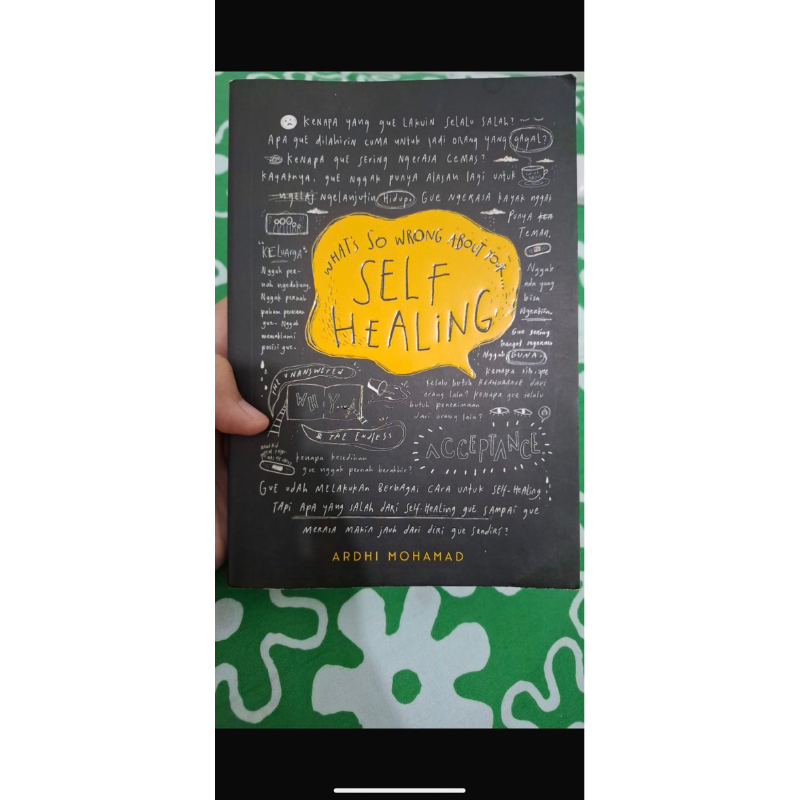 KENAPA YANG gUE LAKUIN SELALU SALAH?
APA gUE DILAHIRIN CUMA UNTUK JADI ORANG YANG GAGAL?
KENAPA gUE SERING NgERASA CEMAS?
KAYAKNYA, gUE NggAK PUNYA ALASAN LAGI UNTUK
NgELANJUTIN Hidup. GUE NgERASA KAYAK NggAK
PUNYA
TEMAN.
WHAT'S SO WRONG ABOUT YOUR....
SELF
HEALING
"KELUARGA"
Nggak per-
nah ngedukung.
Nggak pernah
paham perasaan
gue. Nggak
memaklumi
posisi gue.
Nggak
ada yang
bisa
Ngertiin.
Gue sering
banget ngerasa
Nggak GUNA.
THE UNANSWERED
WHY...
& THE ENDLESS
kenapa sih, gue
selalu butuh REASSURANCE dari
orang lain? kenapa gue selalu
butuh penerimaan
dari orang lain?
ACCEPTANCE
kenapa kesedihan
gue nggak pernah berakhir?
GUE UDAH MELAKUKAN BERBAGAI CARA UNTUK SELF-HEALING.
TAPI APA YANG SALAH DARI SELF-HEALING gUE SAMPAI gUE
MERASA MAKIN JAUH DARI DIRI gUE SENDIRI?
ARDHI MOHAMAD